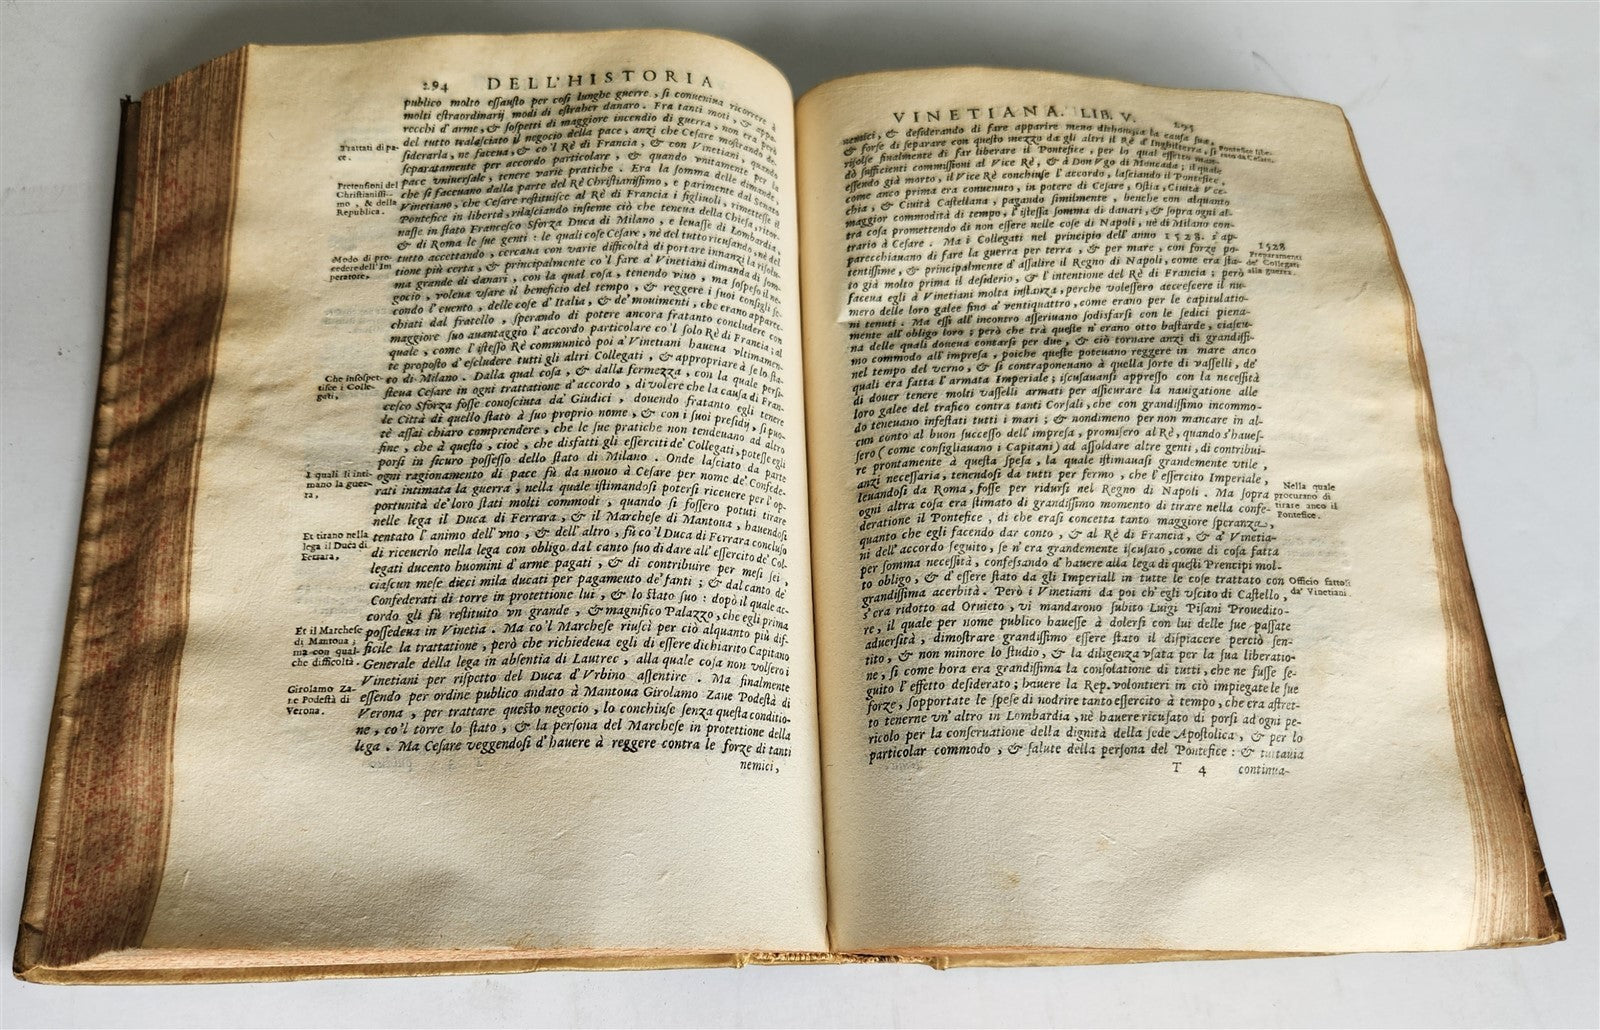 294 DELL'HISTORIA
publico molto essausto per così lunghe guerre, si conueniua ricorrere à
molti estraordinarij modi di estraher danaro. Fra tanti moti, & appa
recchi d'arme, & sospetti di maggiore incendio di guerra, non era però
del tutto tralasciato il negocio della pace, anzi che Cesare mostrando de-
siderarla, ne faceua, & co'l Rè di Francia, & con Vinetiani, quando
separatamente per accordo particolare, & quando vnitamente per la
pace vniuersale, tenere varie pratiche. Era la somma delle dimande,
che si faceuano dalla parte del Rè Christianissimo, e parimente dal Senato
Vinetiano, che Cesare restituisce al Rè di Francia i figliuoli, rimettesse il
Pontefice in libertà, rilasciando insieme ciò che teneua della Chiesa, ritor-
nasse in stato Francesco Sforza Duca di Milano, e leuasse di Lombardia,
& di Roma le sue genti: le quali cose Cesare, nè del tutto ricusando, nè del
tutto accettando, cercaua con varie difficoltà di portare innanzi la risolu-
tione più certa, & principalmente co'l fare a' Vinetiani dimanda di som-
ma grande di danari, con la qual cosa, tenendo viuo, ma sospeso il ne-
gocio, voleua vsare il beneficio del tempo, & reggere i suoi consigli se-
condo l'euento, delle cose d'Italia, & de' mouimenti, che erano apparec-
chiati dal fratello, sperando di potere ancora fratanto concludere con
maggiore suo auantaggio l'accordo particolare co'l solo Rè di Francia; al
quale, come l'istesso Rè communicò poi a' Vinetiani haueua vltimamen-
te proposto d'escludere tutti gli altri Collegati, & appropriare à se lo sta-
to di Milano. Dalla qual cosa, & dalla fermezza, con la quale persi-
steua Cesare in ogni trattatione d'accordo, di volere che la causa di Fran-
cesco Sforza fosse conosciuta da' Giudici, douendo fratanto egli tenere
le Città di quello stato à suo proprio nome, & con i suoi presidij, si puo-
tè assai chiaro comprendere, che le sue pratiche non tendeuano ad altro
fine, che à questo, cioè, che disfatti gli esserciti de' Collegati, potesse egli
porsi in sicuro possesso dello stato di Milano. Onde lasciato da parte
ogni ragionamento di pace fù da nuouo à Cesare per nome de' Confede-
rati intimata la guerra; nella quale istimandosi potersi riceuere per l'op-
portunità de' loro stati molti commodi, quando si fossero potuti tirare
nelle lega il Duca di Ferrara, & il Marchese di Mantoua, hauendosi
tentato l'animo dell'vno, & dell'altro, fù co'l Duca di Ferrara concluso
di riceuerlo nella lega con obligo dal canto suo di dare all'essercito de' Col-
legati ducento huomini d'arme pagati, & di contribuire per mesi sei,
ciascun mese dieci mila ducati per pagamento de' fanti; & dal canto de'
Confederati di torre in protettione lui, & lo stato suo: dopò il quale ac-
cordo gli fù restituito vn grande, & magnifico Palazzo, che egli prima
possedeua in Vinetia. Ma co'l Marchese riuscì per ciò alquanto più dif-
ficile la trattatione, però che richiedeua egli di essere dichiarito Capitano
Generale della lega in absentia di Lautrec, alla quale cosa non volsero i
Vinetiani per rispetto del Duca d'Vrbino assentire. Ma finalmente
essendo per ordine publico andato à Mantoua Girolamo Zane Podestà di
Verona, per trattare questo negocio, lo conchiuse senza questa conditio-
ne, co'l torre lo stato, & la persona del Marchese in protettione della
lega. Ma Cesare veggendosi d'hauere à reggere contra le forze di tanti
nemici,
Trattati di pa-
ce.
Pretensioni del
Christianissi-
mo, & della
Republica.
Modo di pro-
cedere dell'Im
peratore,
Che insospet-
tisce i Colle-
gati,
I quali li inti-
mano la guer-
ra,
Et tirano nella
lega il Duca di
Ferrara,
Et il Marchese
di Mantoua;
ma con qual-
che difficoltà.
Girolamo Za-
ne Podestà di
Verona.
VINETIANA. LIB. V. 295
nemici, & desiderando di fare apparire meno dishonesta la causa sua,
& forse di separare con questo mezzo da gli altri il Rè d'Inghilterra, si
risolse finalmente di far liberare il Pontefice, per lo qual effetto man-
dò sufficienti commissioni al Vice Rè, & à Don Vgo di Moncada; il quale
essendo già morto, il Vice Rè conchiuse l'accordo, lasciando il Pontefice,
come anco prima era conuenuto, in potere di Cesare, Ostia, Ciuità Vec-
chia, & Ciuità Castellana, pagando similmente, benche con alquanto
maggior commodità di tempo, l'istessa somma di danari, & sopra ogni al-
tra cosa promettendo di non essere nelle cose di Napoli, nè di Milano con-
trario à Cesare. Ma i Collegati nel principio dell'anno 1528. s'ap-
parecchiauano di fare la guerra per terra, & per mare, con forze po-
tentissime, & principalmente d'assalire il Regno di Napoli, come era sta-
to già molto prima il desiderio, & l'intentione del Rè di Francia; però
faceua egli à Vinetiani molta instanza, perche volessero accrescere il nu-
mero delle loro galee fino a' ventiquattro, come erano per le capitulatio-
ni tenuti. Ma essi all'incontro asseriuano sodisfarsi con le sedici piena-
mente all'obligo loro; però che trà queste n'erano otto bastarde, ciascu-
na delle quali doueua contarsi per due, & ciò tornare anzi di grandissi-
mo commodo all'impresa, poiche queste poteuano reggere in mare anco
nel tempo del verno, & si contraponeuano à quella sorte di vasselli, de'
quali era fatta l'armata Imperiale; iscusauansi appresso con la necessità
di douer tenere molti vasselli armati per assicurare la nauigatione alle
loro galee del trafico contra tanti Corsali, che con grandissimo incommo-
do teneuano infestati tutti i mari; & nondimeno per non mancare in al-
cun conto al buon successo dell'impresa, promisero al Rè, quando s'haues-
sero (come consigliauano i Capitani) ad assoldare altre genti, di contribui-
re prontamente à questa spesa, la quale istimauasi grandemente vtile,
anzi necessaria, tenendosi da tutti per fermo, che l'essercito Imperiale,
leuandosi da Roma, fosse per ridursi nel Regno di Napoli. Ma sopra
ogni altra cosa era stimato di grandissimo momento di tirare nella confe-
deratione il Pontefice, di che erasi concetta tanto maggiore speranza,
quanto che egli facendo dar conto, & al Rè di Francia, & a' Vinetia-
ni dell'accordo seguito, se n'era grandemente iscusato, come di cosa fatta
per somma necessità, confessando d'hauere alla lega di questi Prencipi mol-
to obligo, & d'essere stato da gli Imperiali in tutte le cose trattato con
grandissima acerbità. Però i Vinetiani da poi ch'egli vscito di Castello,
s'era ridotto ad Oruieto, vi mandarono subito Luigi Pisani Prouedito-
re, il quale per nome publico hauesse à dolersi con lui delle sue passate
aduersità, dimostrare grandissimo essere stato il dispiacere perciò sen-
tito, & non minore lo studio, & la diligenza vsata per la sua liberatio-
ne, si come hora era grandissima la consolatione di tutti, che ne fusse se-
guito l'effetto desiderato; hauere la Rep. volontieri in ciò impiegate le sue
forze, sopportate le spese di nodrire tanto essercito à tempo, che era astret-
to tenerne vn'altro in Lombardia, nè hauere ricusato di porsi ad ogni pe-
ricolo per la conseruatione della dignità della sede Apostolica, & per lo
particolar commodo, & salute della persona del Pontefice: & tuttauia
T 4 continua-
Pontefice libe-
rato da Cesare.
1528
Preparamenti
de' Collegati
alla guerra.
Nella quale
procurano di
tirare anco il
Pontefice.
Officio fattoli
da' Vinetiani.